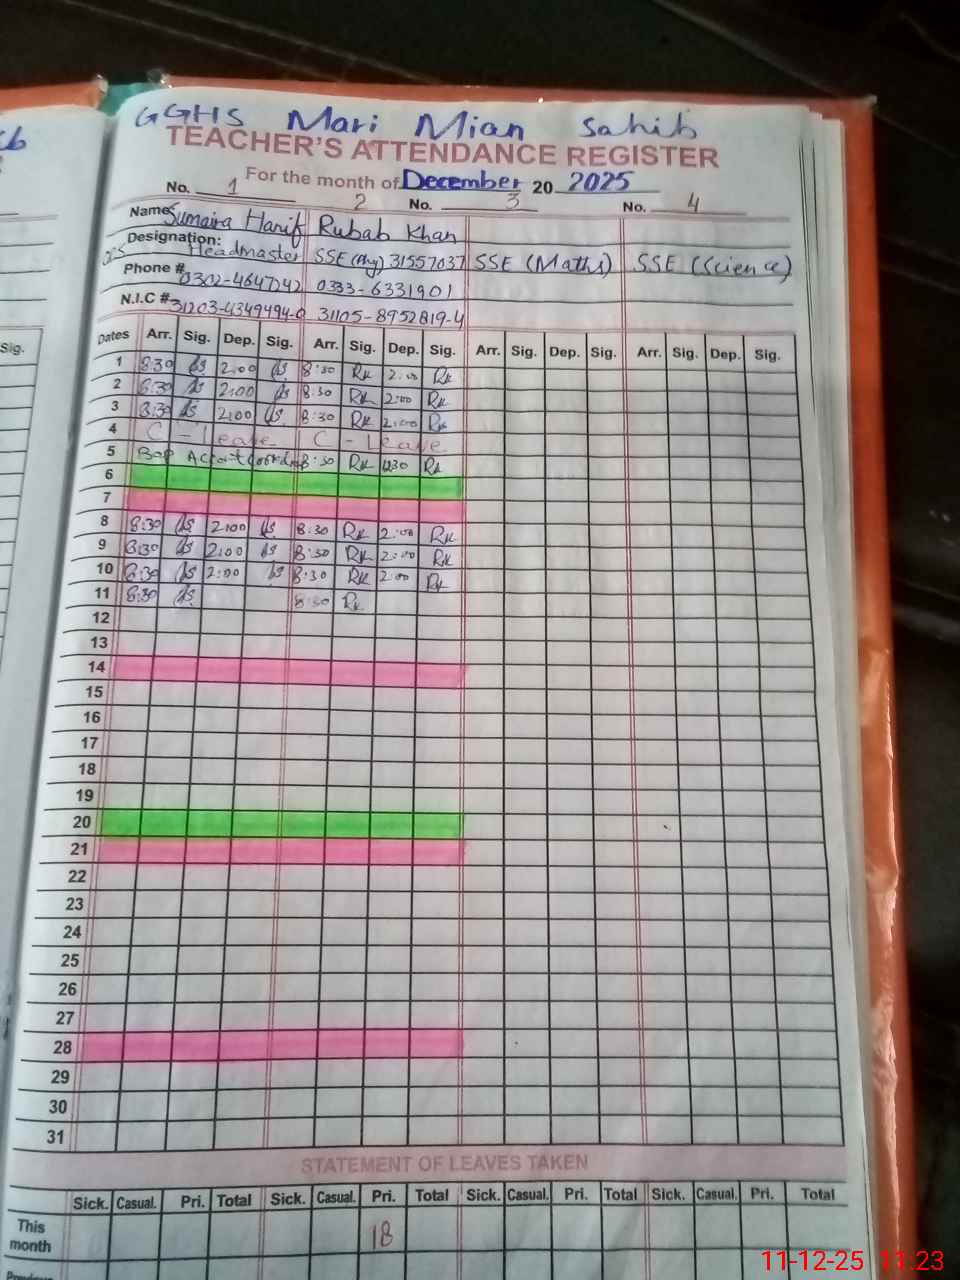 GGHS Mari Mian Sahib
TEACHER'S ATTENDANCE REGISTER
For the month of December 20 2025
No. 1 2 No. 3 No. 4
Name Sumaira Hanif Rubab Khan
Designation: Headmaster SSE (Phy) 31557037 SSE (Maths) SSE (Science)
Phone # 0302-4647242 0333-6331901
N.I.C # 31203-4349494-0 31105-8952819-4
Dates Arr. Sig. Dep. Sig. Arr. Sig. Dep. Sig. Arr. Sig. Dep. Sig. Arr. Sig. Dep. Sig.
1 8:30 2:00 8:30 Rk 2:00 Rk
2 8:30 2:00 8:30 Rk 2:00 Rk
3 8:30 2:00 8:30 Rk 2:00 Rk
4 C - Leave C - Leave
5 8:30 Rk Rk
6
7
8 8:30 2:00 8:30 Rk 2:00 Rk
9 8:30 2:00 8:30 Rk 2:00 Rk
10 8:30 2:00 8:30 Rk 2:00 Rk
11 8:30 8:30 Rk
12
13
14
15
16
17
18
19
20
21
22
23
24
25
26
27
28
29
30
31
STATEMENT OF LEAVES TAKEN
Sick. Casual. Pri. Total Sick. Casual. Pri. Total Sick. Casual. Pri. Total Sick. Casual. Pri. Total
This month 18
Sig.
11-12-25 11:23